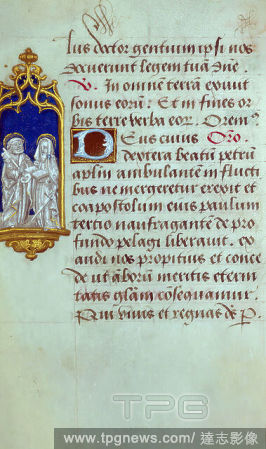 lus doctor gentium ipsi nos
docuerunt legem tuā dñe
V. In omnem terrā exiuit
sonus eorū: Et in fines or
bis terre verba eor. Orem9
DEus cuius Oro.
dextera beatū petrū
aplm ambulantē in flucti
bus ne mergeretur erexit et
coapostolum eius paulum
tertio naufragantē de pro
fundo pelagi liberauit. ex
audi nos propitius et conce
de ut amborū meritis eterni
tatis glām cōsequamur.
Qui viuis et regnas dē P.
TPG
www.tpgnews.com / 達志影像